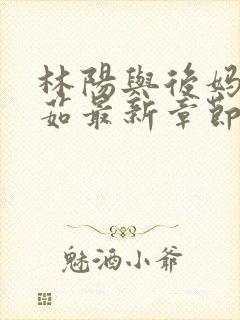 林陽與後妈
茹最新章節
魅酒小爺